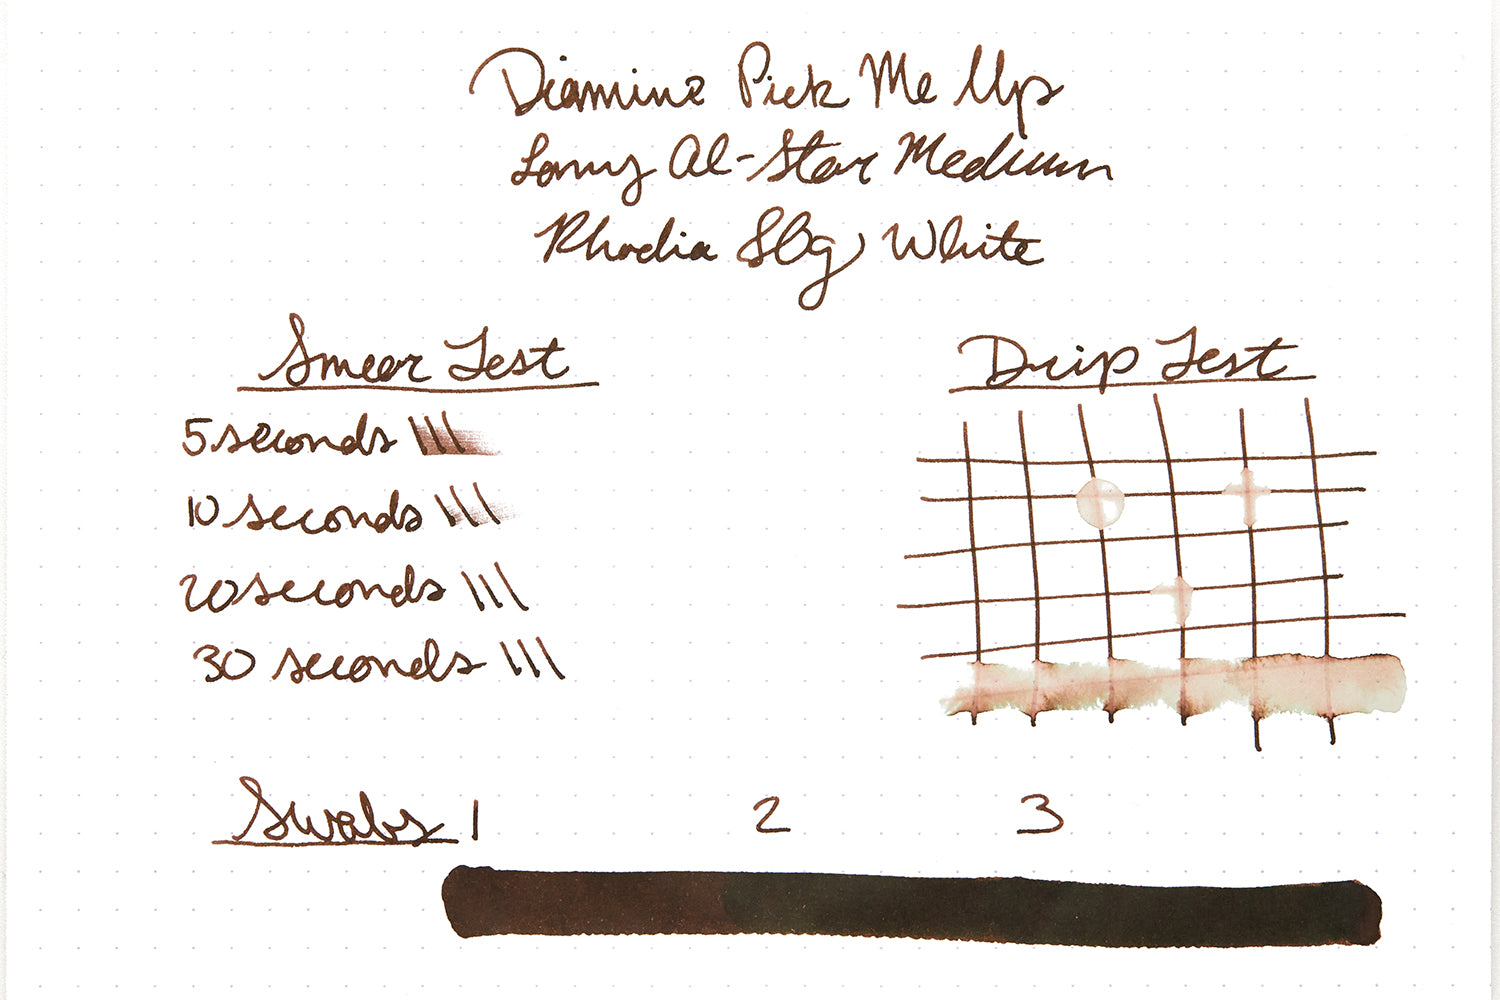 Diamine Pick Me Up
Lamy Al-Star Medium
Rhodia 80g White
Smear Test
5 seconds
10 seconds
20 seconds
30 seconds
Drip Test
Swabs 1 2 3